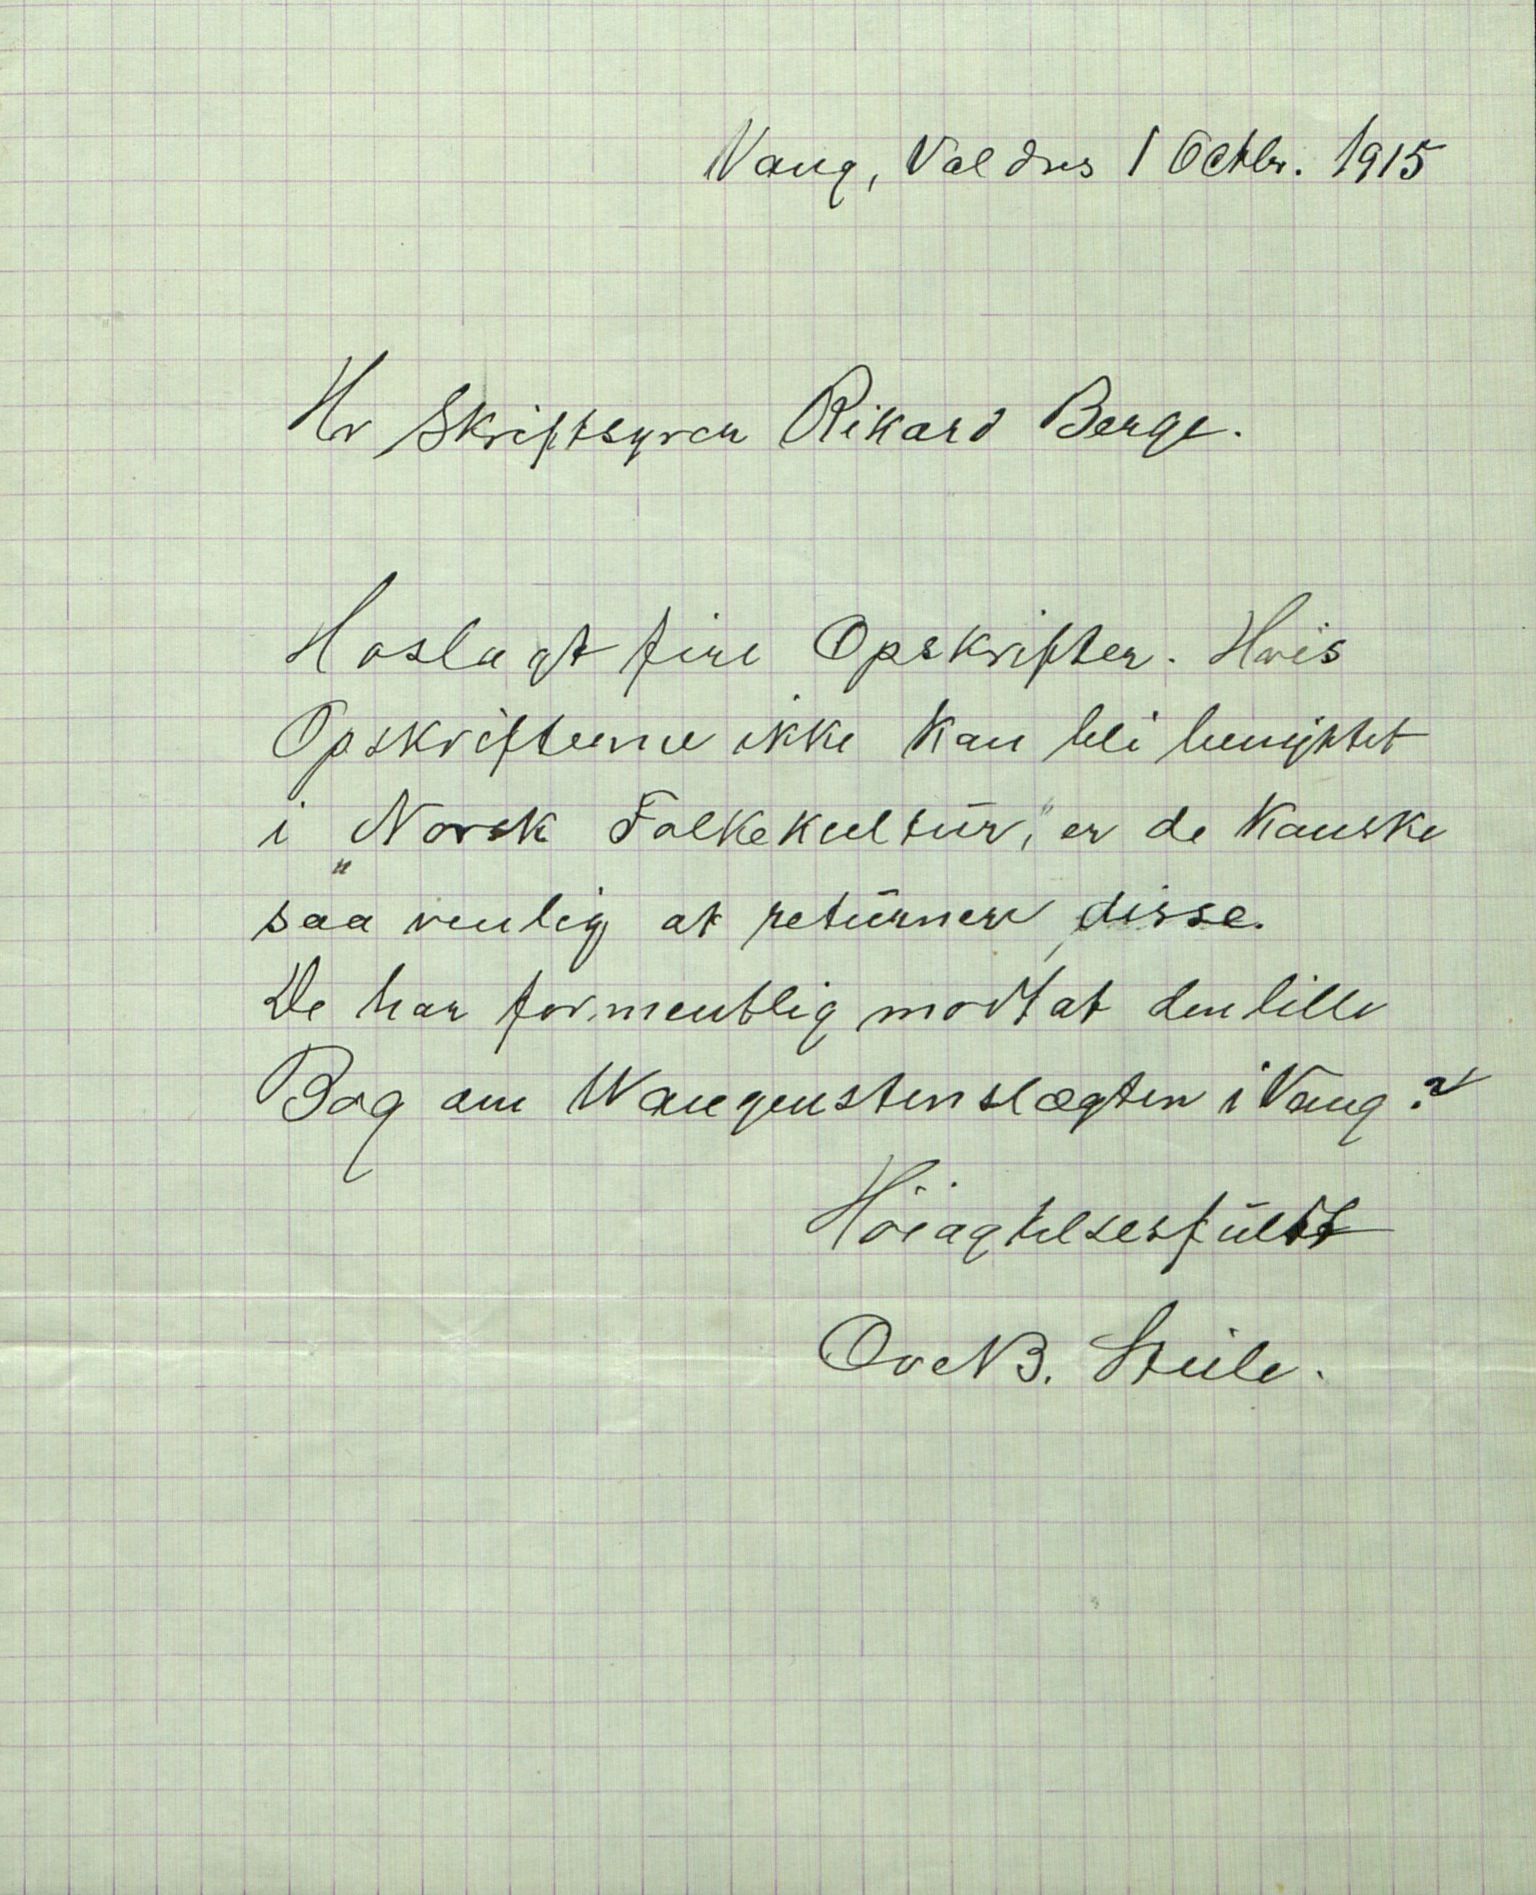 Vang, Valdres 1 Octbr. 1915
Hr Skriftsyrer Rikard Berge.
Hoslagt fire Opskrifter. Hvis
Opskrifterne ikke kan bli benyttet
i „Norsk Folkekultur," er de kanske
saa venlig at returnere disse.
De har formentlig modtat den lille
Bog om Wangenstenslægten i Vang?
Höiagtelsesfuldt
Ove B.